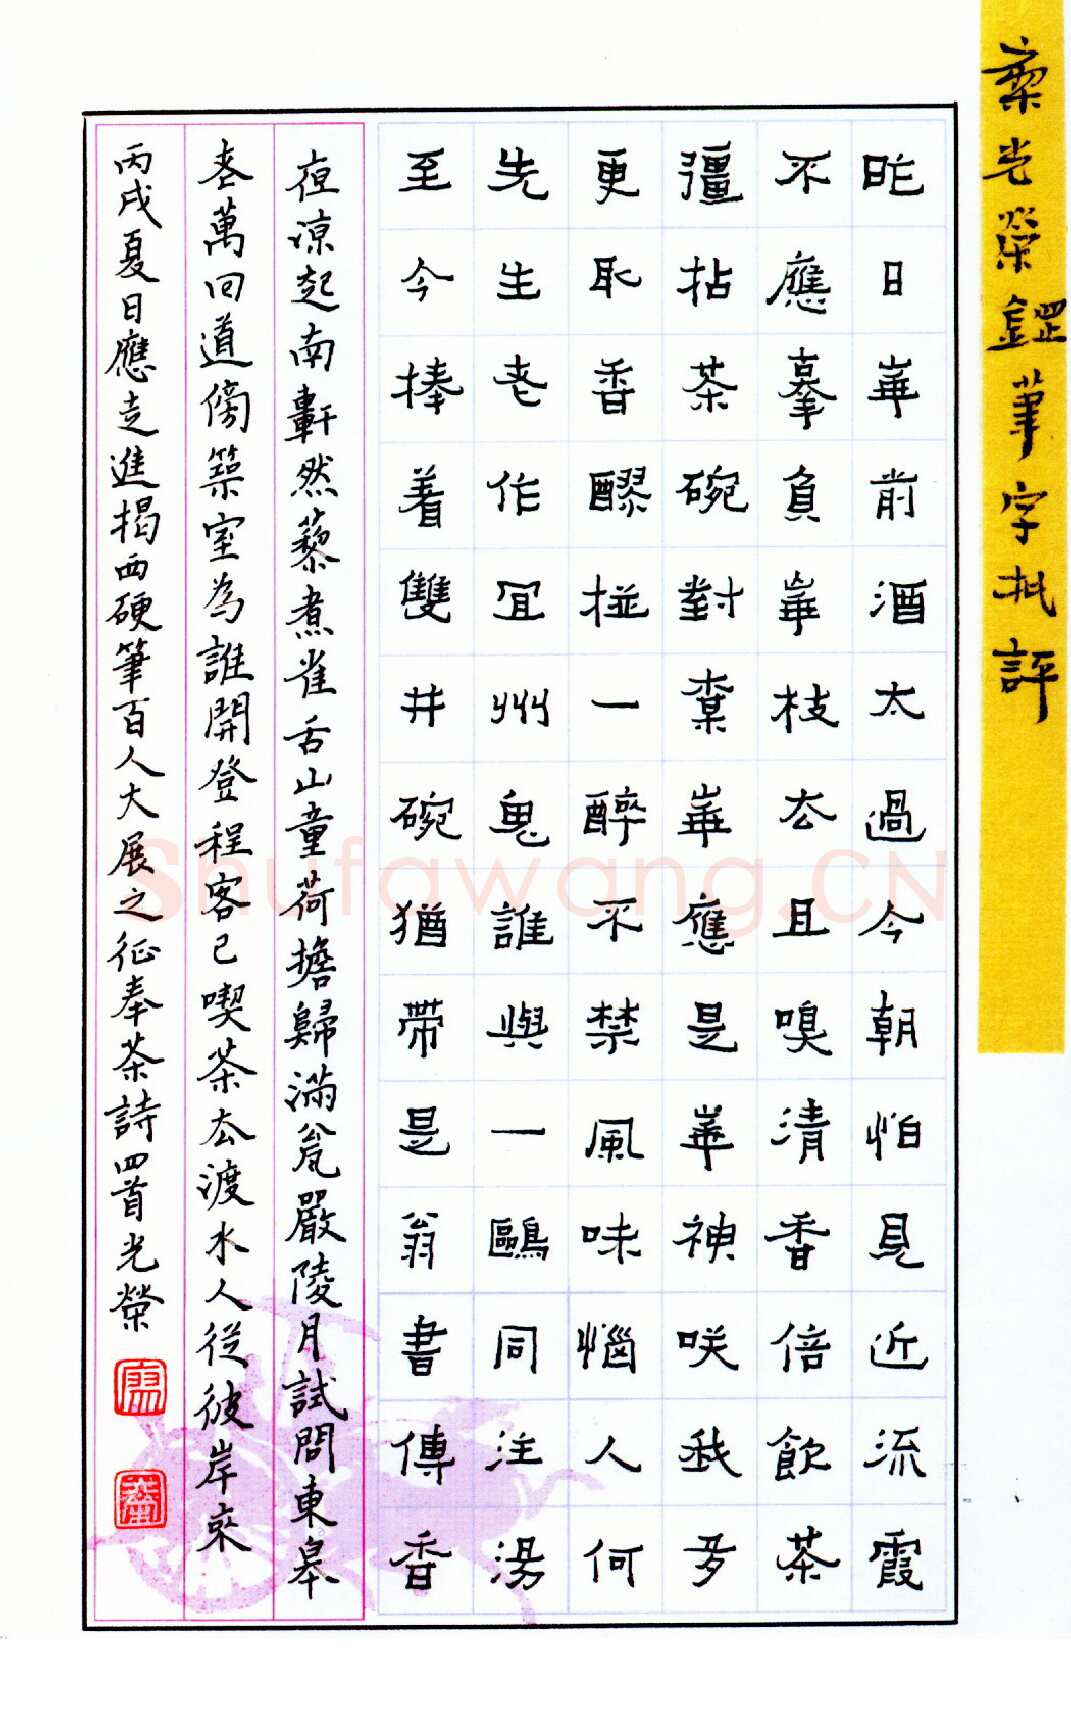 光榮鋼筆字批評
昨日華前酒太過今朝怕見近流霞
不應摹負華枝去且嗅清香倍飲茶
彊拈茶碗對華應是華神咲我多
更恥香醪椪一醉不禁風味惱人何
先生老作宜州鬼誰與一鷗同注湯
至今捧着雙井碗猶帶是翁書傳香
夜涼起南軒然藜煮雀舌山童荷擔歸滿瓮嚴陵月試問東皋
老萬回道傍築室為誰開登程客已喫茶去渡水人從彼岸來
丙戌夏日應走進揭西硬筆百人大展之征奉茶詩四首光榮
Shufawang.CN